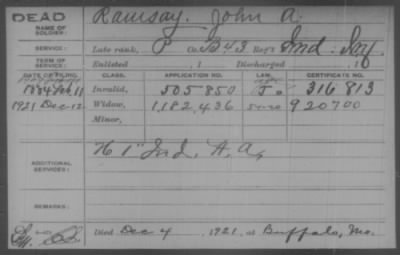 DEAD
NAME OF SOLDIER: Ramsay, John A.
SERVICE: Late rank, P Co. B 43 Reg't Ind. Inf.
TERM OF SERVICE: Enlisted , 1 Discharged , 18
DATE OF FILING. CLASS. APPLICATION NO. LAW. CERTIFICATE NO.
1884 Feb 11 Invalid, 505850 316813
1921 Dec 12 Widow, 1,182,436 920700
Minor,
ADDITIONAL SERVICES: 1" Ind. H. A.
REMARKS:
Died Dec 4 , 1921, at Buffalo, Mo.